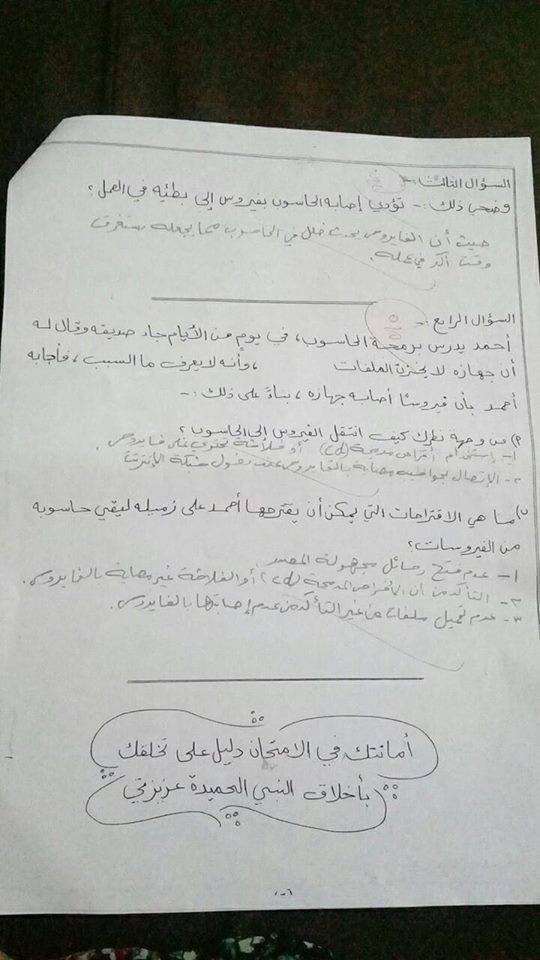 السؤال الثالث :-
وضحي ذلك :- تؤدي إصابة الحاسوب بفيروس إلى بطئه في العمل ؟
حيث أن الفايروس يحدث خلل في الحاسوب مما يجعله يستغرق
وقت أكبر في عمله .
السؤال الرابع :-
5
5
أحمد يدرس برمجة الحاسوب ، في يوم من الأيام جاء صديقه وقال له
أن جهازه لا يخزن الملفات ، وأنه لا يعرف ما السبب ، فأجابه
أحمد بأن فيروسًا أصاب جهازه ، بناءً على ذلك :-
من وجهة نظرك كيف انتقل الفيروس إلى الحاسوب ؟
1- إستخدام أقراص مدمجة (cd) أو فلاشة تحتوي على فايروس .
2- الإتصال بحواسيب مصابة بالفايروس عند دخول شبكة الإنترنت
ما هي الاقتراحات التي يمكن أن يقترحها أحمد على زميله ليقي حاسوبه
من الفيروسات ؟
1- عدم فتح رسائل مجهولة المصدر .
2- التأكد من أن الأقراص المدمجة (cd) أو الفلاشة غير مصابة بالفايروس .
3- عدم تحميل ملفات من غير التأكد من عدم إصابتها بالفايروس .
أمانتك في الامتحان دليل على تخلقك
بأخلاق النبي الحميدة عزيزتي